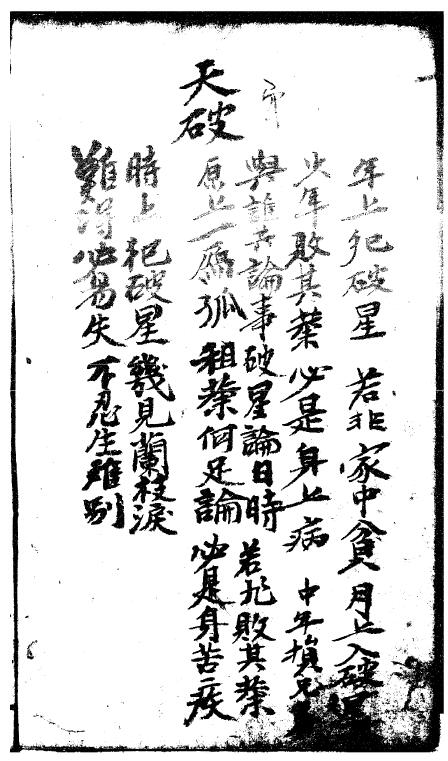 天破
年上犯破星 若非家中貧 月上入破星
少年敗其業 必是身上病 中年損兄弟
與誰共論事 破星論日時 若非敗其業
原上一鴈孤 祖業何足論 必是身苦疾
時上犯破星 幾見蘭枝淚
難得必易失 不忍生離別